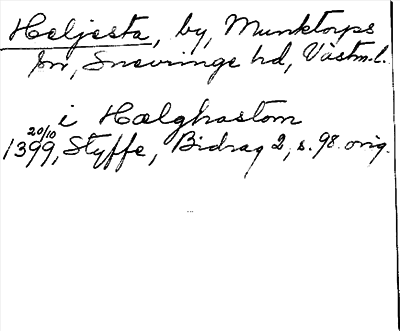 Heljesta, by, Munktorps
sn, Snevringe hd, Västm.l.
i Hælghastom
1399 20/10, Styffe, Bidrag 2, s. 98. orig.